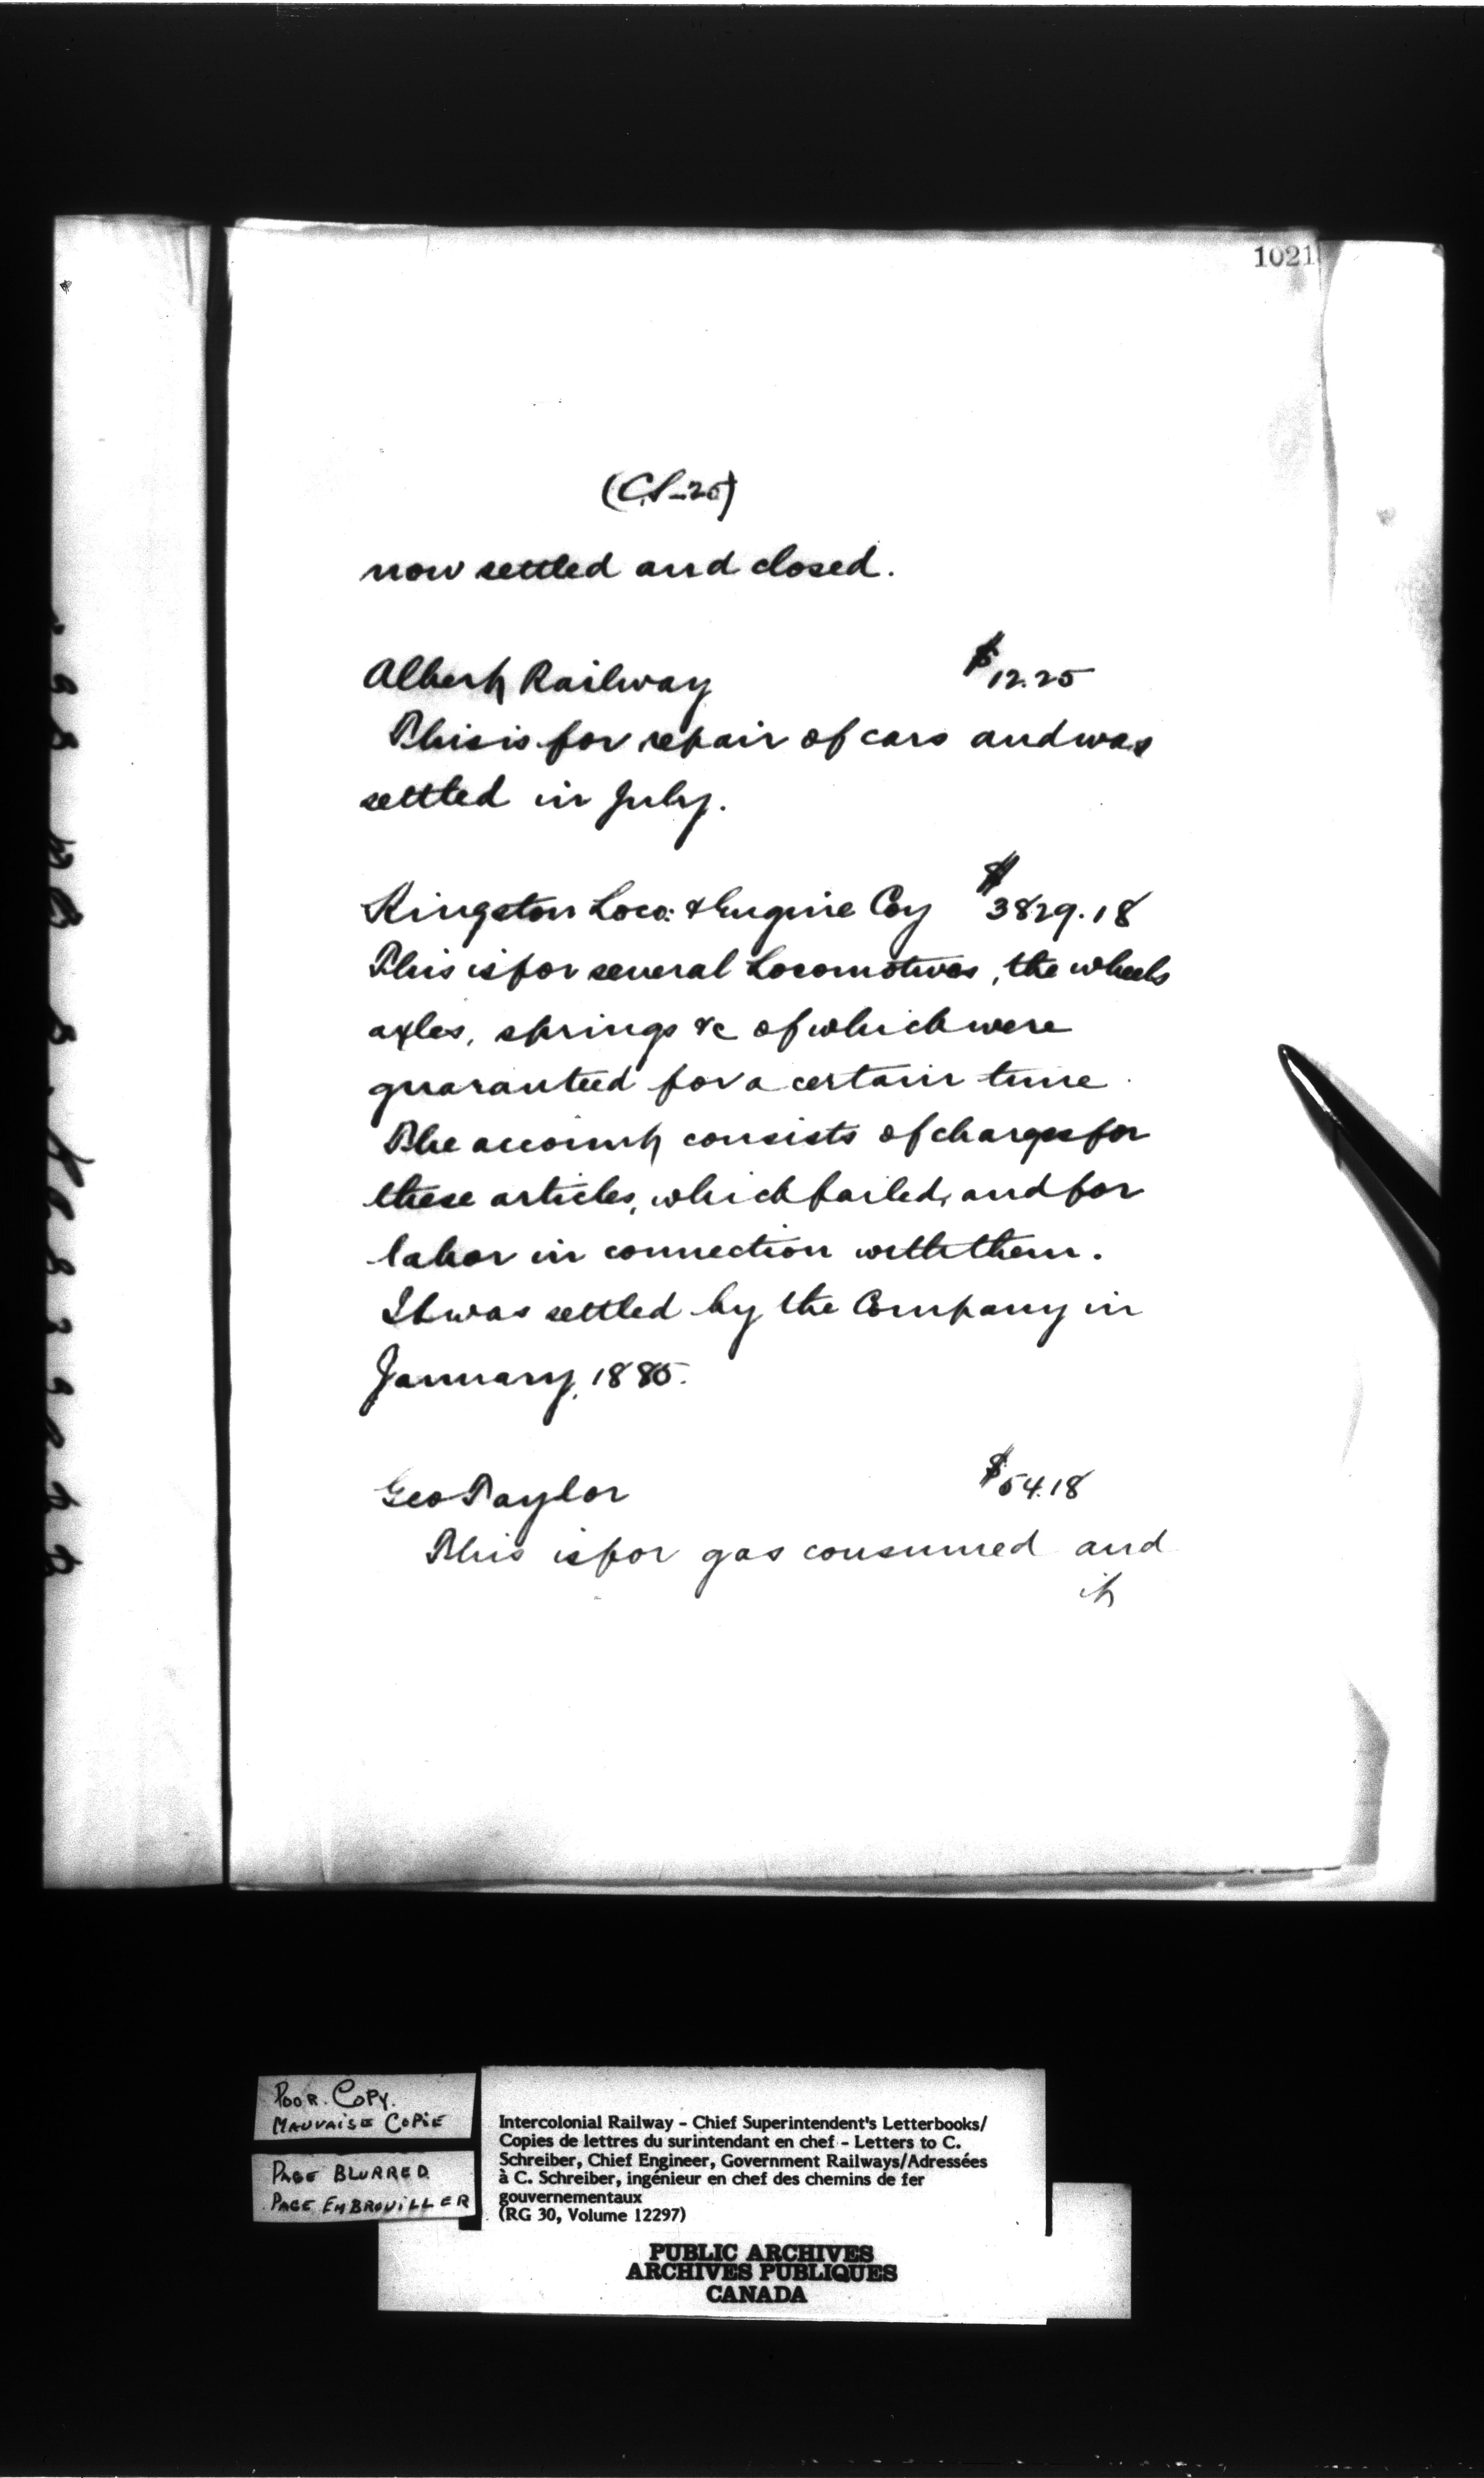 1021
(C.S-25)
now settled and closed.
Albert Railway $12.25
This is for repair of cars and was
settled in July.
Kingston Loco: & Engine Coy $3829.18
This is for several Locomotives, the wheels
axles, springs &c of which were
guaranteed for a certain time
The account consists of charges for
these articles, which failed, and for
labor in connection with them.
It was settled by the Company in
January, 1885.
Geo Taylor $54.18
This is for gas consumed and
it
POOR. COPY.
MAUVAISE COPIE
PAGE BLURRED
PAGE EMBROUILLER
Intercolonial Railway - Chief Superintendent's Letterbooks/
Copies de lettres du surintendant en chef - Letters to C.
Schreiber, Chief Engineer, Government Railways/Adressées
à C. Schreiber, ingénieur en chef des chemins de fer
gouvernementaux
(RG 30, Volume 12297)
PUBLIC ARCHIVES
ARCHIVES PUBLIQUES
CANADA